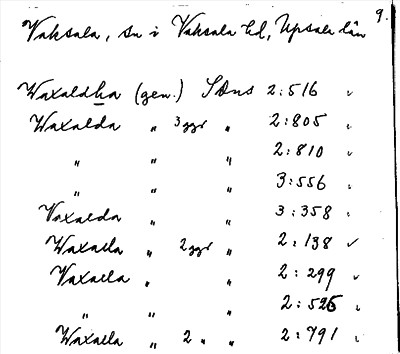 9.
Vaksala, sn i Vaksala hd, Upsala län
Waxaldha (gen.) SDns 2:516 ✓
Waxalda „ 3 ggr „ 2:805 „
„ „ 2:810 „
„ „ 3:556 „
Vaxalda „ „ 3:358 „
Waxalla „ 2 ggr „ 2:138 ✓
Vaxalla „ „ 2:299 ✓
„ „ „ 2:525 „
Waxalla „ 2 „ „ 2:791 „